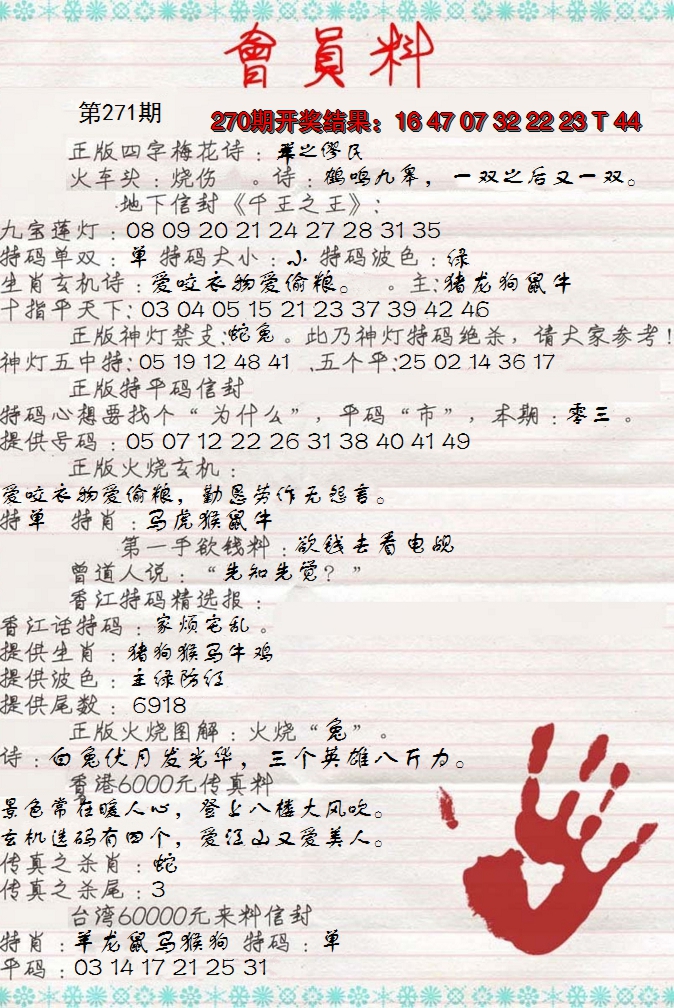 會員料
第271期
270期开奖结果：16 47 07 32 22 23 T 44
正版四字梅花诗：群之僇民
火车头：烧伤 。诗：鹤鸣九皋，一双之后又一双。
地下信封《千王之王》：
九宝莲灯：08 09 20 21 24 27 28 31 35
特码单双：单 特码大小：小 特码波色：绿
生肖玄机诗：爱咬衣物爱偷粮。 。主:猪龙狗鼠牛
十指平天下: 03 04 05 15 21 23 37 39 42 46
正版神灯禁支:蛇兔。此乃神灯特码绝杀，请大家参考!
神灯五中特: 05 19 12 48 41 、五个平:25 02 14 36 17
正版特平码信封
特码心想要找个“为什么”，平码“市”，本期：零三 。
提供号码：05 07 12 22 26 31 38 40 41 49
正版火烧玄机：
爱咬衣物爱偷粮，勤恳劳作无怨言。
特单 特肖：马虎猴鼠牛
第一手欲钱料：欲钱去看电视
曾道人说：“先知先觉？”
香江特码精选报：
香江话特码：家烦宅乱。
提供生肖：猪狗猴马牛鸡
提供波色：主绿防红
提供尾数：6918
正版火烧图解：火烧“兔”。
诗：白兔伏月发光华，三个英雄八斤力。
香港6000元传真料
景色常在暖人心，登上八楼大风吹。
玄机选码有四个，爱江山又爱美人。
传真之杀肖：蛇
传真之杀尾：3
台湾60000元来料信封
特肖：羊龙鼠马猴狗 特码：单
平码：03 14 17 21 25 31